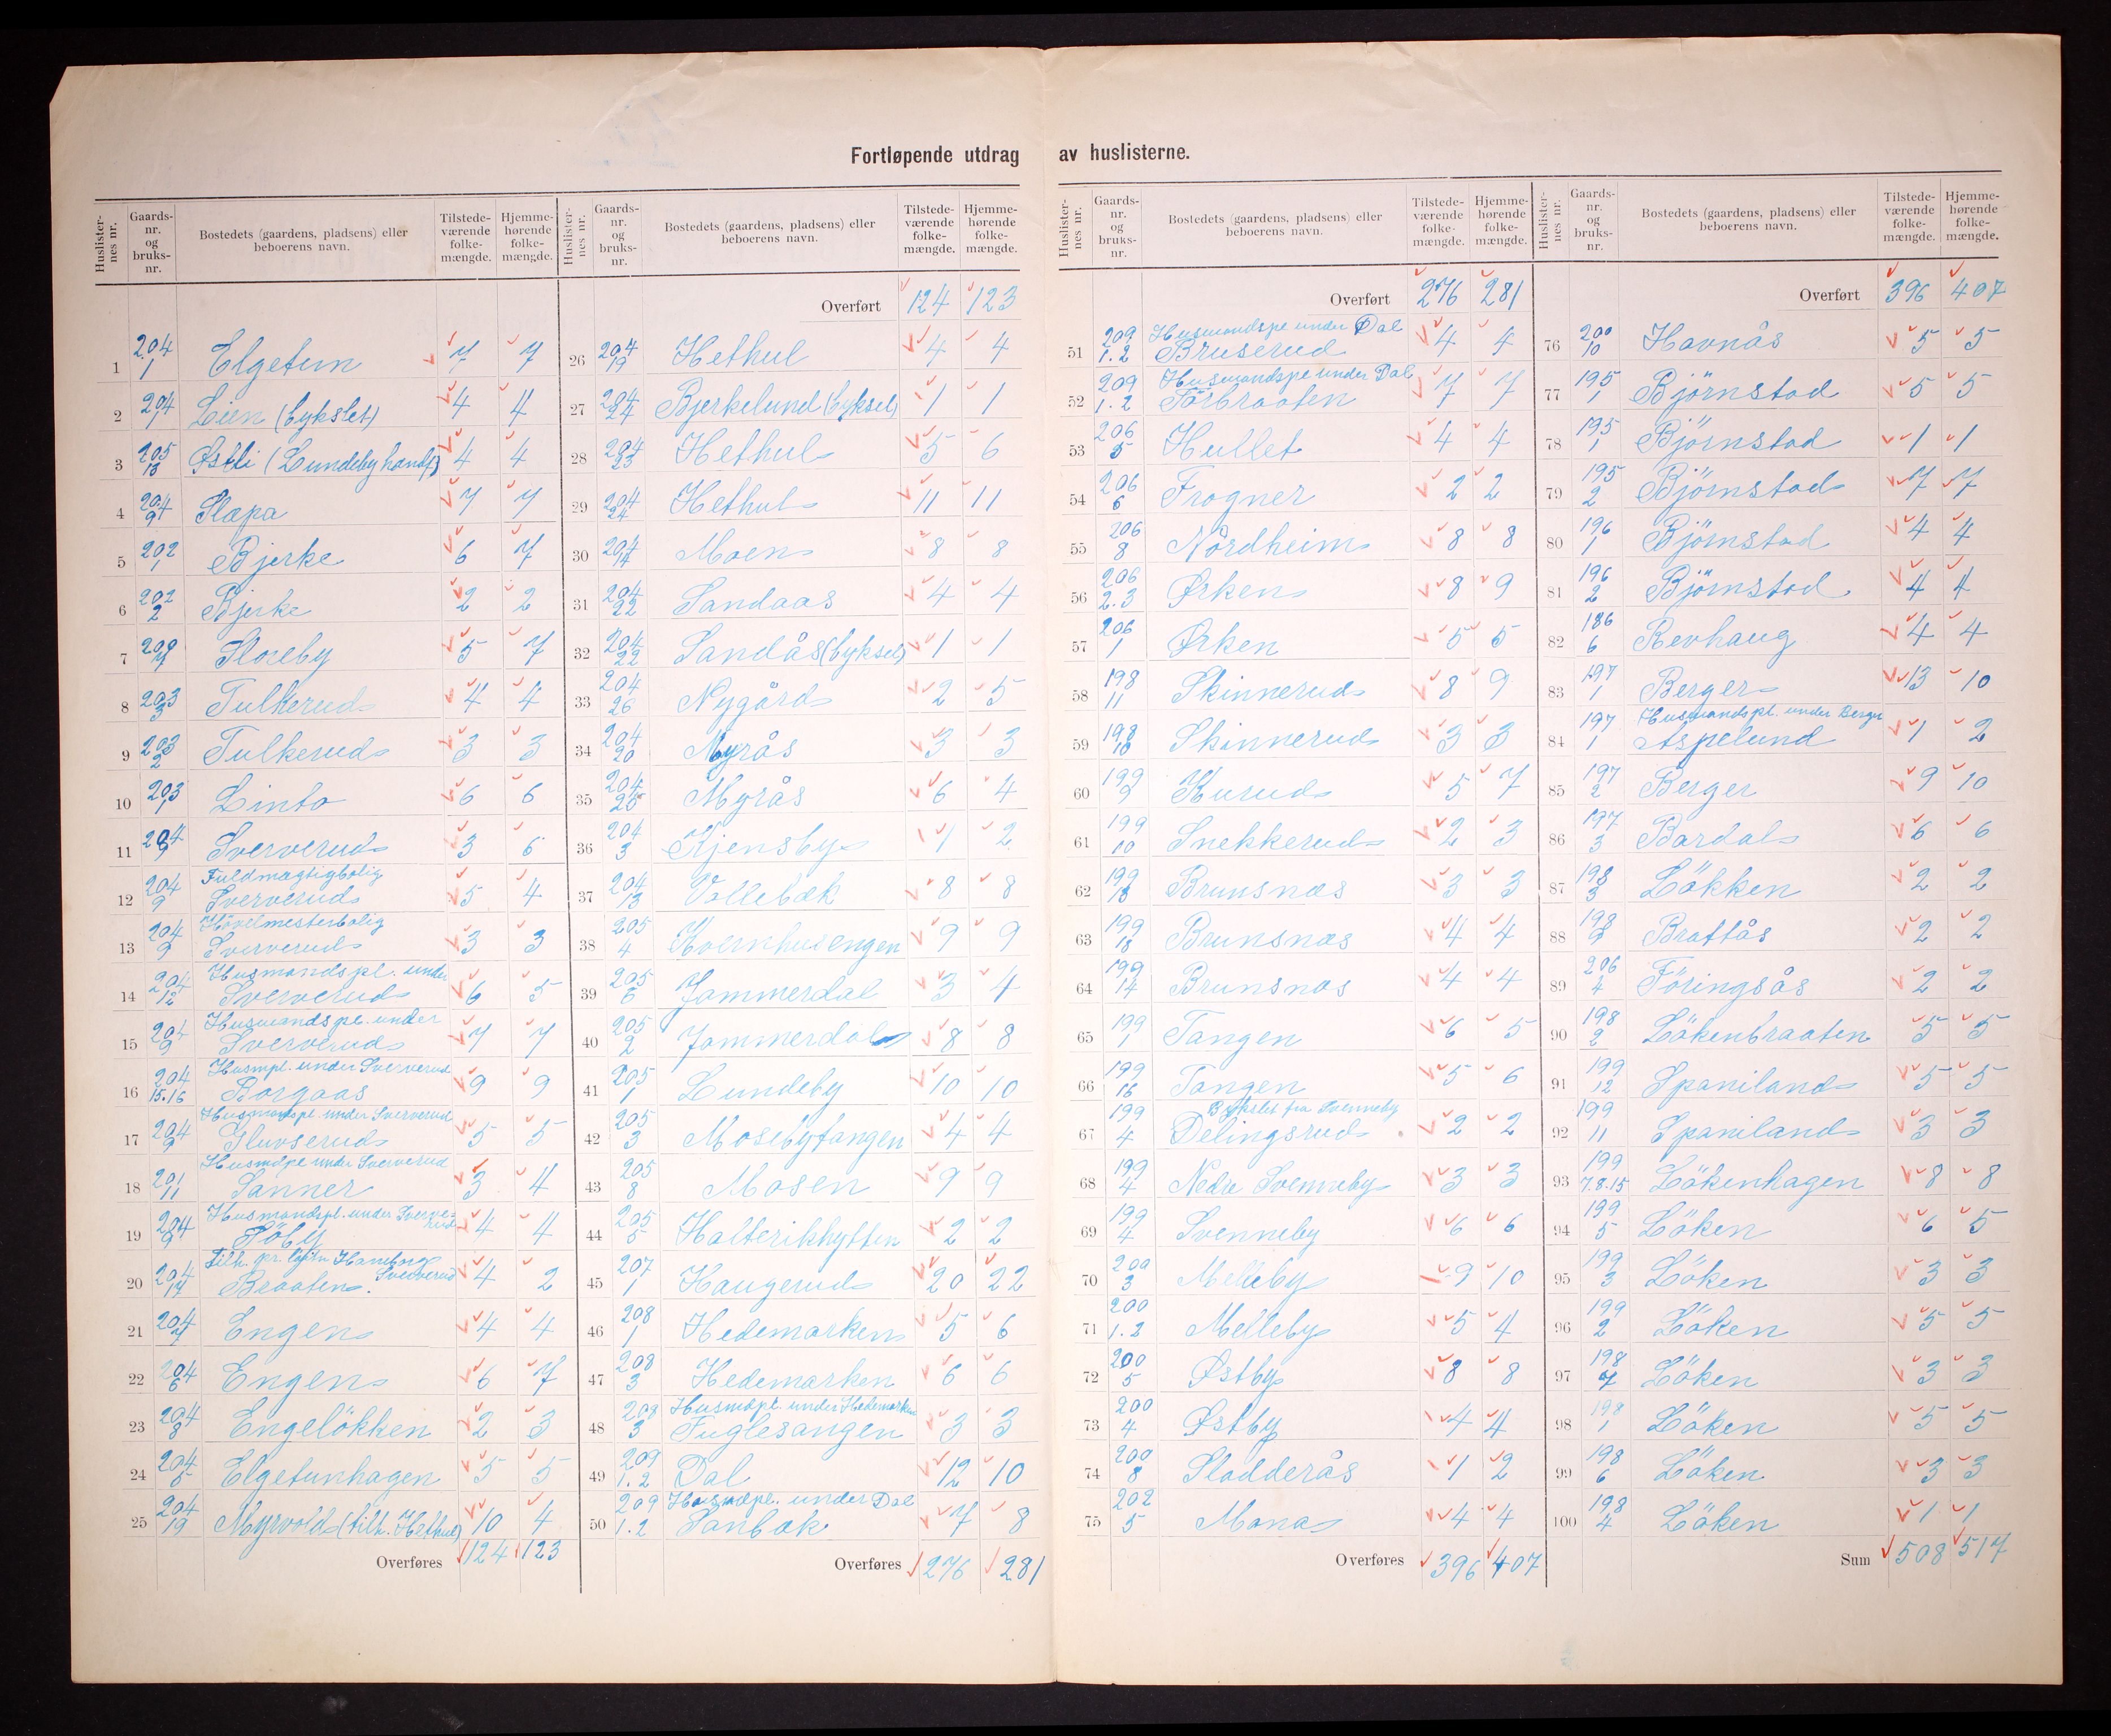 Fortløpende utdrag av huslisterne.
Huslister-nes nr. Gaards-nr. og bruks-nr. Bostedets (gaardens, pladsens) eller beboerens navn. Tilstede-værende folke-mængde. Hjemme-hørende folke-mængde.
1 204/1 Elgetun 7 7
2 204/1 Lien (bykslet) 4 4
3 205/13 Østli (Lundeby handf) 4 4
4 204/9 Slæpa 7 7
5 202/1 Bjerke 6 7
6 202/2 Bjerke 2 2
7 200/7 Sloreby 5 7
8 203/3 Tulkerud 4 4
9 203/2 Tulkerud 3 3
10 203/1 Linto 6 6
11 204/9 Sververud 3 6
Fuldmægtigbolig
12 204/9 Sververud 5 4
Hövelmesterbolig
13 204/9 Sververud 3 3
Husmandspl. under
14 204/12 Sververud 6 5
Husmandspl. under
15 204/9 Sververud 7 7
Husmpl. under Sververud
16 204/15.16 Borgaas 9 9
Husmandspl under Sververud
17 204/9 Gluvserud 5 5
Husmdpl under Sververud
18 201/11 Sanner 3 4
Husmandspl. under Sververud
19 204/9 Töby 4 4
Tilh. gr. løitn Hamborg Sververud
20 204/14 Braaten. 4 2
21 204/7 Engen 4 4
22 204/6 Engen 6 7
23 204/8 Engelökken 2 3
24 204/5 Elgetunhagen 5 5
25 204/19 Myrvold (tilh. Hethul) 10 4
Overføres 124 123
Huslister-nes nr. Gaards-nr. og bruks-nr. Bostedets (gaardens, pladsens) eller beboerens navn. Tilstede-værende folke-mængde. Hjemme-hørende folke-mængde.
Overført 124 123
26 204/19 Hethul 4 4
27 204/24 Bjerkelund (byksel) 1 1
28 204/23 Hethul 5 6
29 204/24 Hethul 11 11
30 204/14 Moen 8 8
31 204/22 Sandaas 4 4
32 204/22 Sandås (byksel) 1 1
33 204/26 Nygård 2 5
34 204/20 Myrås 3 3
35 204/25 Myrås 6 4
36 204/3 Kjensby 1 2
37 204/13 Vollebæk 8 8
38 205/4 Kvernhusengen 9 9
39 205/6 Jammerdal 3 4
40 205/2 Jammerdal 8 8
41 205/1 Lundeby 10 10
42 205/3 Mosebytangen 4 4
43 205/8 Mosen 9 9
44 205/5 Halterikhytten 2 2
45 207/1 Haugerud 20 22
46 208/1 Hedemarken 5 6
47 208/3 Hedemarken 6 6
Husmdpl. under Hedemarken
48 208/3 Fuglesangen 3 3
49 209/1.2 Dal 12 10
Husmdpl. under Dal
50 209/1.2 Sanbæk 7 8
Overføres 276 281
Huslister-nes nr. Gaards-nr. og bruks-nr. Bostedets (gaardens, pladsens) eller beboerens navn. Tilstede-værende folke-mængde. Hjemme-hørende folke-mængde.
Overført 276 281
Husmandspl under Dal
51 209/1.2 Bruserud 4 4
Husmandspl under Dal
52 209/1.2 Törbraaten 7 7
53 206/5 Hullet 4 4
54 206/6 Frogner 2 2
55 206/8 Nordheim 8 8
56 206/2.3 Ørken 8 9
57 206/1 Ørken 5 5
58 198/11 Skinnerud 8 9
59 198/10 Skinnerud 3 3
60 199/9 Kurud 5 7
61 199/10 Snekkerud 2 3
62 199/13 Brunsnæs 3 3
63 199/18 Brunsnæs 4 4
64 199/14 Brunsnæs 4 4
65 199/1 Tangen 6 5
66 199/16 Tangen 5 6
Bykslet fra Svenneby
67 199/4 Delingsrud 2 2
68 199/4 Nedre Svenneby 3 3
69 199/4 Svenneby 6 6
70 200/3 Melleby 9 10
71 200/1.2 Melleby 5 4
72 200/5 Østby 8 8
73 200/4 Østby 4 4
74 200/8 Sladderås 1 2
75 202/5 Mona 4 4
Overføres 396 407
Huslister-nes nr. Gaards-nr. og bruks-nr. Bostedets (gaardens, pladsens) eller beboerens navn. Tilstede-værende folke-mængde. Hjemme-hørende folke-mængde.
Overført 396 407
76 200/10 Havnås 5 5
77 195/1 Björnstad 5 5
78 195/1 Björnstad 1 1
79 195/2 Björnstad 7 7
80 196/1 Björnstad 4 4
81 196/2 Björnstad 4 4
82 186/6 Revhaug 4 4
83 197/1 Berger 13 10
Husmandspl. under Berger
84 197/1 Aspelund 1 2
85 197/2 Berger 9 10
86 197/3 Bardal 6 6
87 198/3 Lökken 2 2
88 198/9 Brattås 2 2
89 206/4 Föringsås 2 2
90 198/2 Lökenbraaten 5 5
91 199/12 Spaniland 5 5
92 199/11 Spaniland 3 3
93 199/7.8.15 Lökenhagen 8 8
94 199/5 Löken 6 5
95 199/3 Löken 3 3
96 199/2 Löken 5 5
97 198/7 Löken 3 3
98 198/1 Löken 5 5
99 198/6 Löken 3 3
100 198/4 Löken 1 1
Sum 508 517